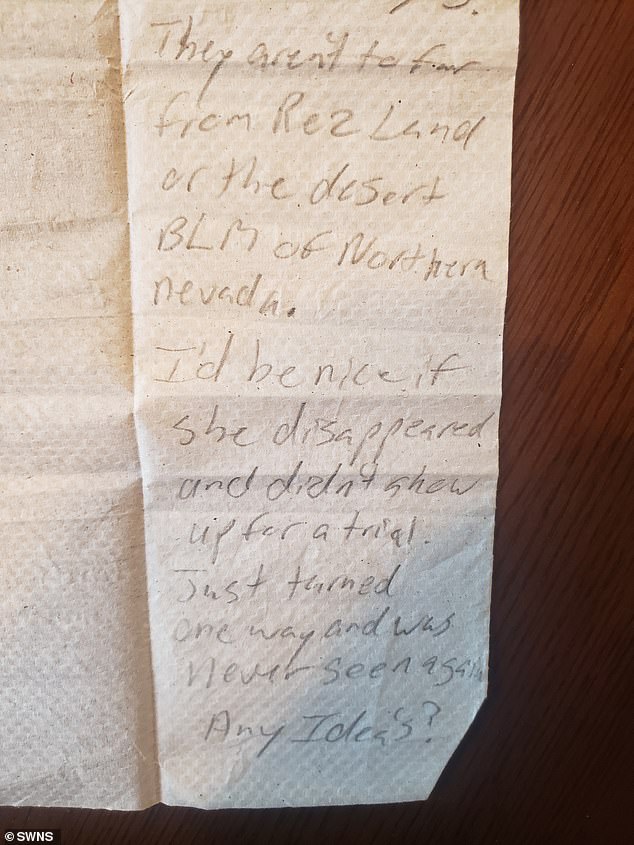 They aren't to far
from Rez Land
or the desert
BLM of Northern
nevada.
I'd be nice if
she disappeared
and didn't show
up for a trial.
Just turned
one way and was
never seen again
Any Idea's?
© SWNS